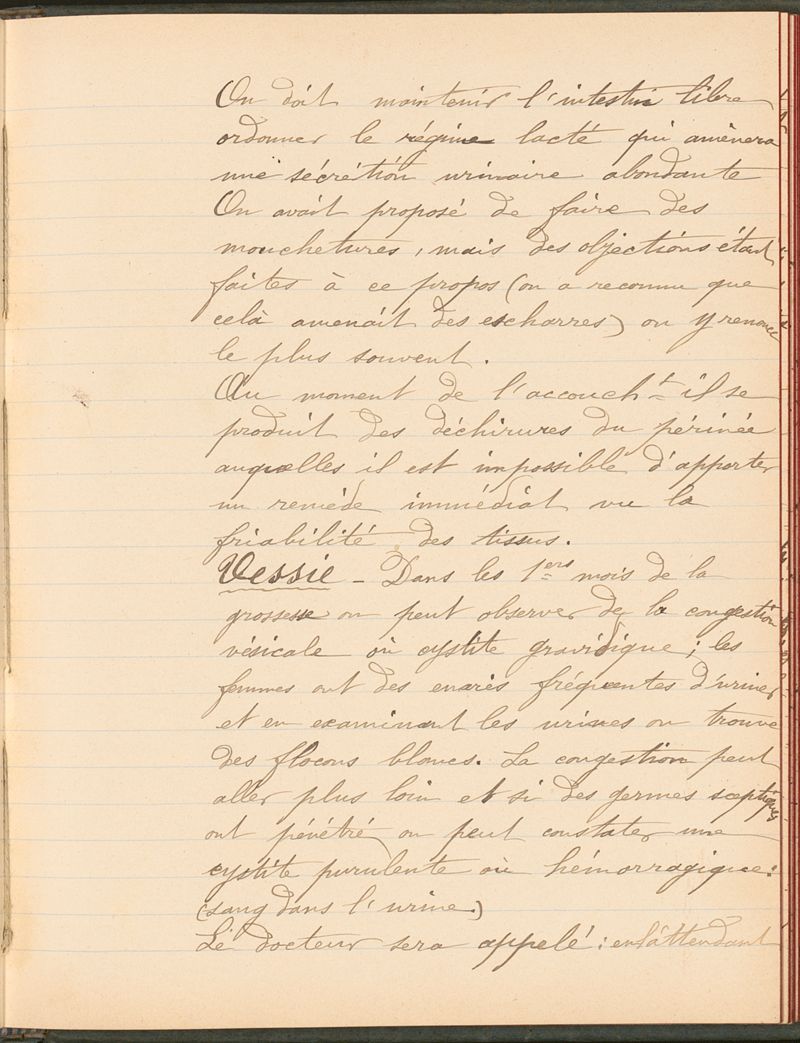 On doit maintenir l'intestin libre
ordonner le régime lacté qui amènera
une sécrétion urinaire abondante
On avait proposé de faire des
mouchetures, mais des objections étant
faites à ce propos (on a reconnu que
celà amenait des escharres) on y renonce
le plus souvent.
Au moment de l'accouch^t il se
produit des déchirures du périnée
auquelles il est impossible d'apporter
un remède immédiat vu la
friabilité des tissus.
Vessie - Dans les 1^ers mois de la
grossesse on peut observer de la congestion
vésicale ou cystite gravidique; les
femmes ont des envies fréquentes d'uriner
et en examinant les urines on trouve
des flocons blancs. La congestion peut
aller plus loin et si des germes sceptiques
ont pénétré on peut constater une
cystite purulente ou hémorragique:
(sang dans l'urine.)
Le docteur sera appelé: en l'attendant